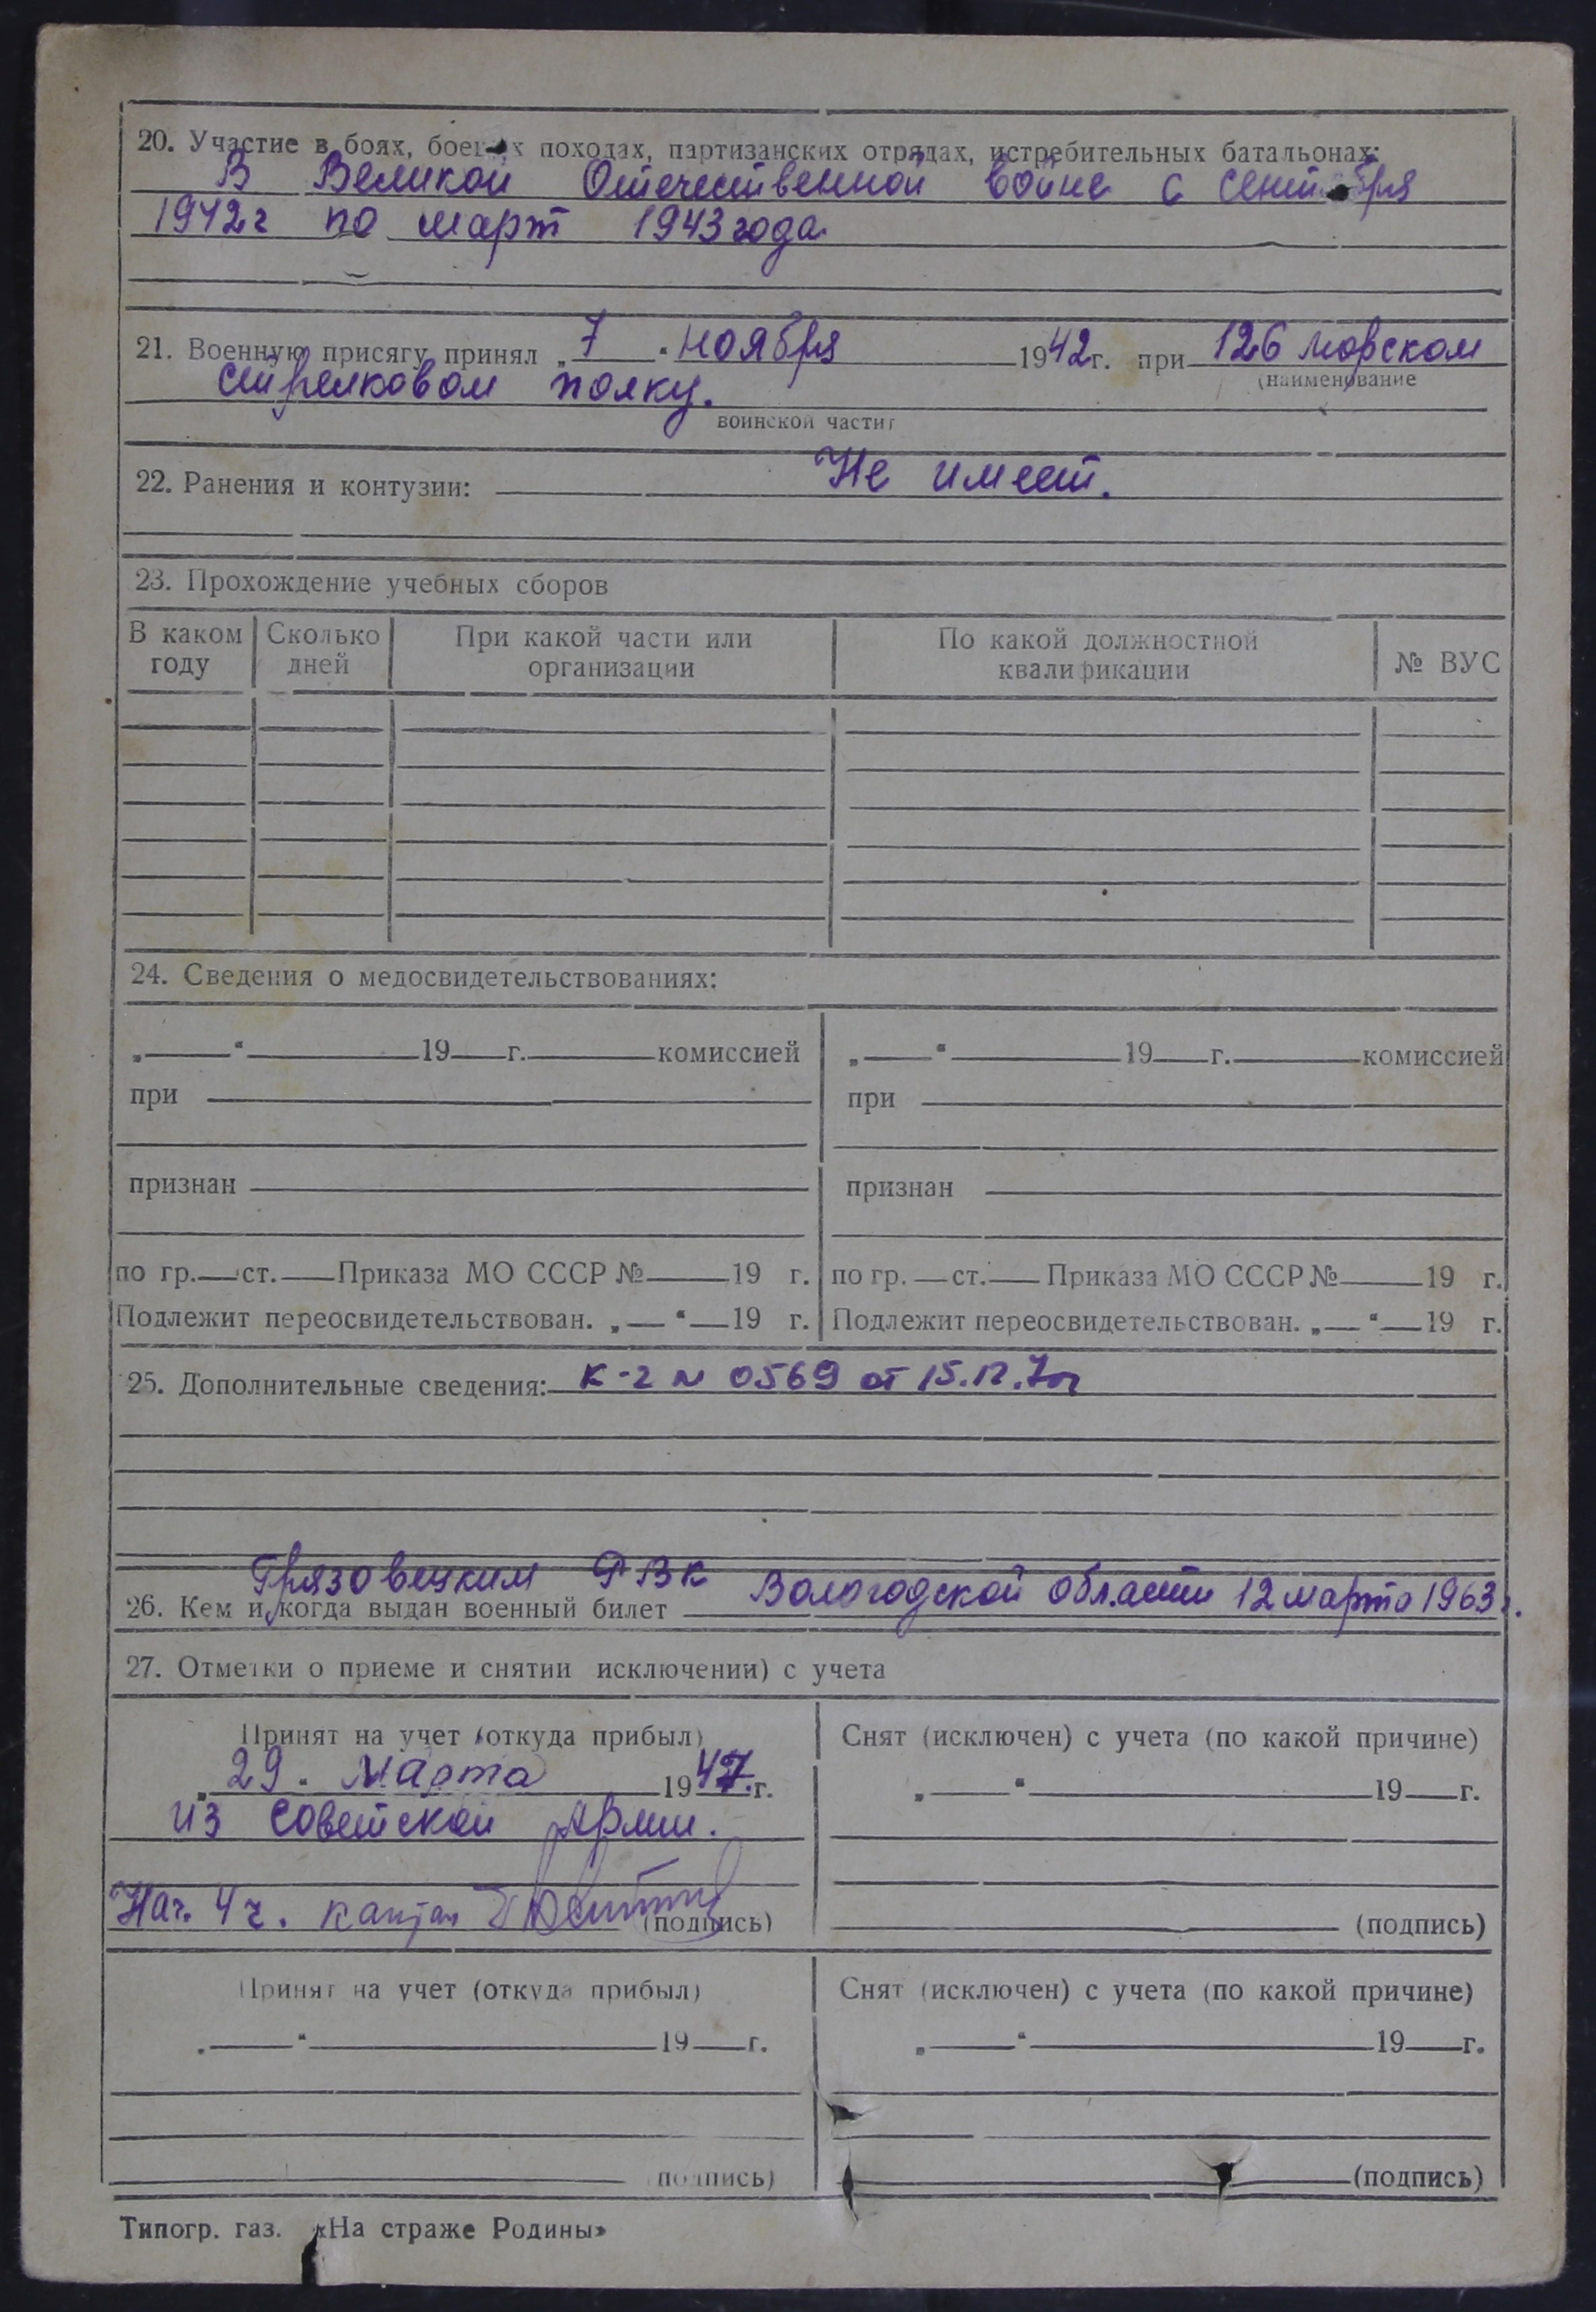 20. Участие в боях, боевых походах, партизанских отрядах, истребительных батальонах:
В Великой Отечественной войне с сентября
1942г по март 1943 года.
21. Военную присягу принял „ 7 " ноября 1942 г. при 126 морском
(наименование
стрелковом полку.
воинской части)
22. Ранения и контузии: Не имеет.
23. Прохождение учебных сборов
В каком году Сколько дней При какой части или организации По какой должностной квалификации № ВУС
24. Сведения о медосвидетельствованиях:
„ “ 19 г. комиссией „ “ 19 г. комиссией
при при
признан признан
по гр. ст. Приказа МО СССР № 19 г. по гр. ст. Приказа МО СССР № 19 г.
Подлежит переосвидетельствован. „ “ 19 г. Подлежит переосвидетельствован. „ “ 19 г.
25. Дополнительные сведения: К-2 N 0569 от 15.12.70г
Грязовецким РВК Вологодской области 12 марта 1963 г.
26. Кем и когда выдан военный билет
27. Отметки о приеме и снятии исключении) с учета
Принят на учет (откуда прибыл) Снят (исключен) с учета (по какой причине)
„ 29 “ Марта 1947 г. „ “ 19 г.
из Советской Армии.
Нач. 4 ч. капитан (подпись) (подпись)
Принят на учет (откуда прибыл) Снят (исключен) с учета (по какой причине)
„ “ 19 г. „ “ 19 г.
(подпись) (подпись)
Типогр. газ. «На страже Родины»